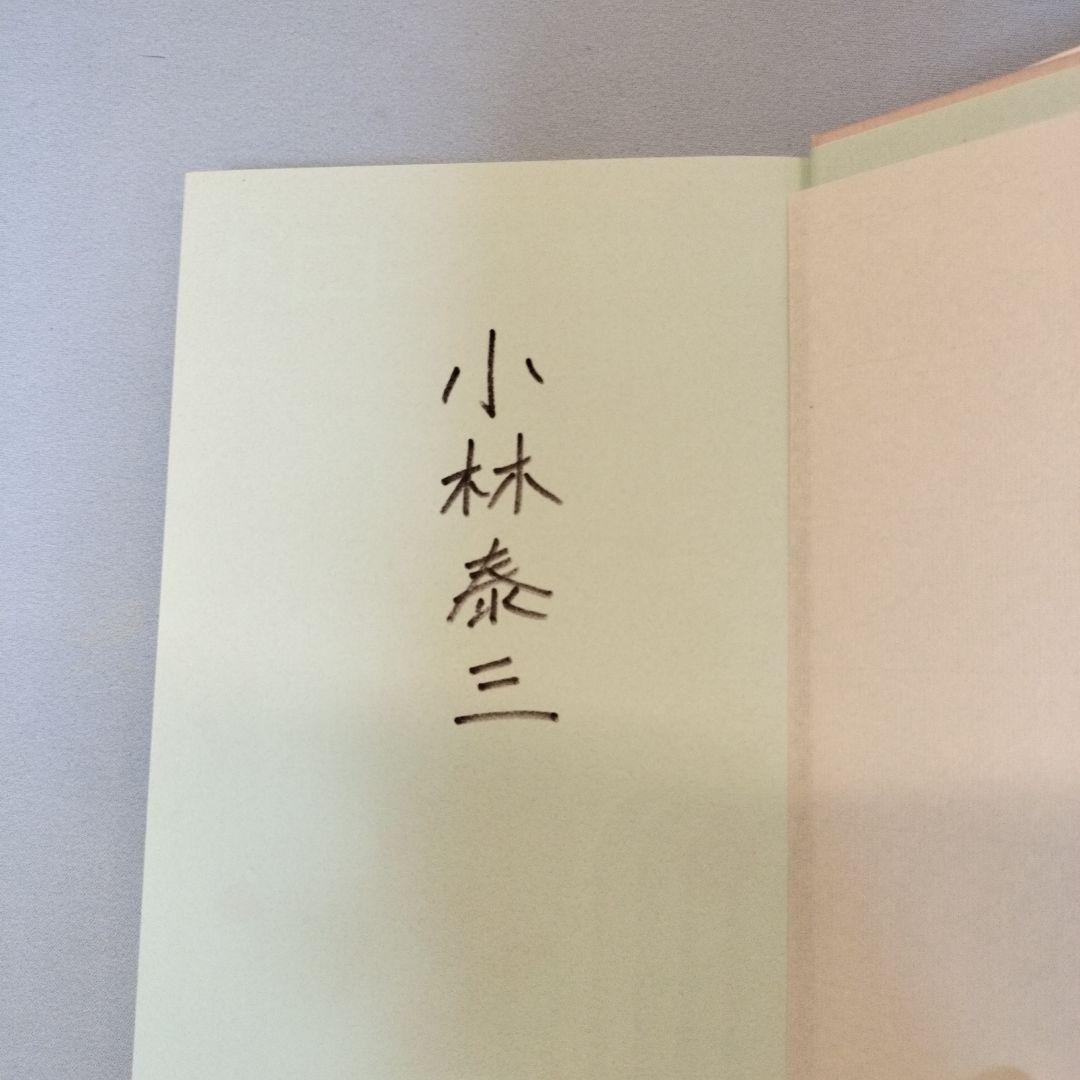 小林泰三